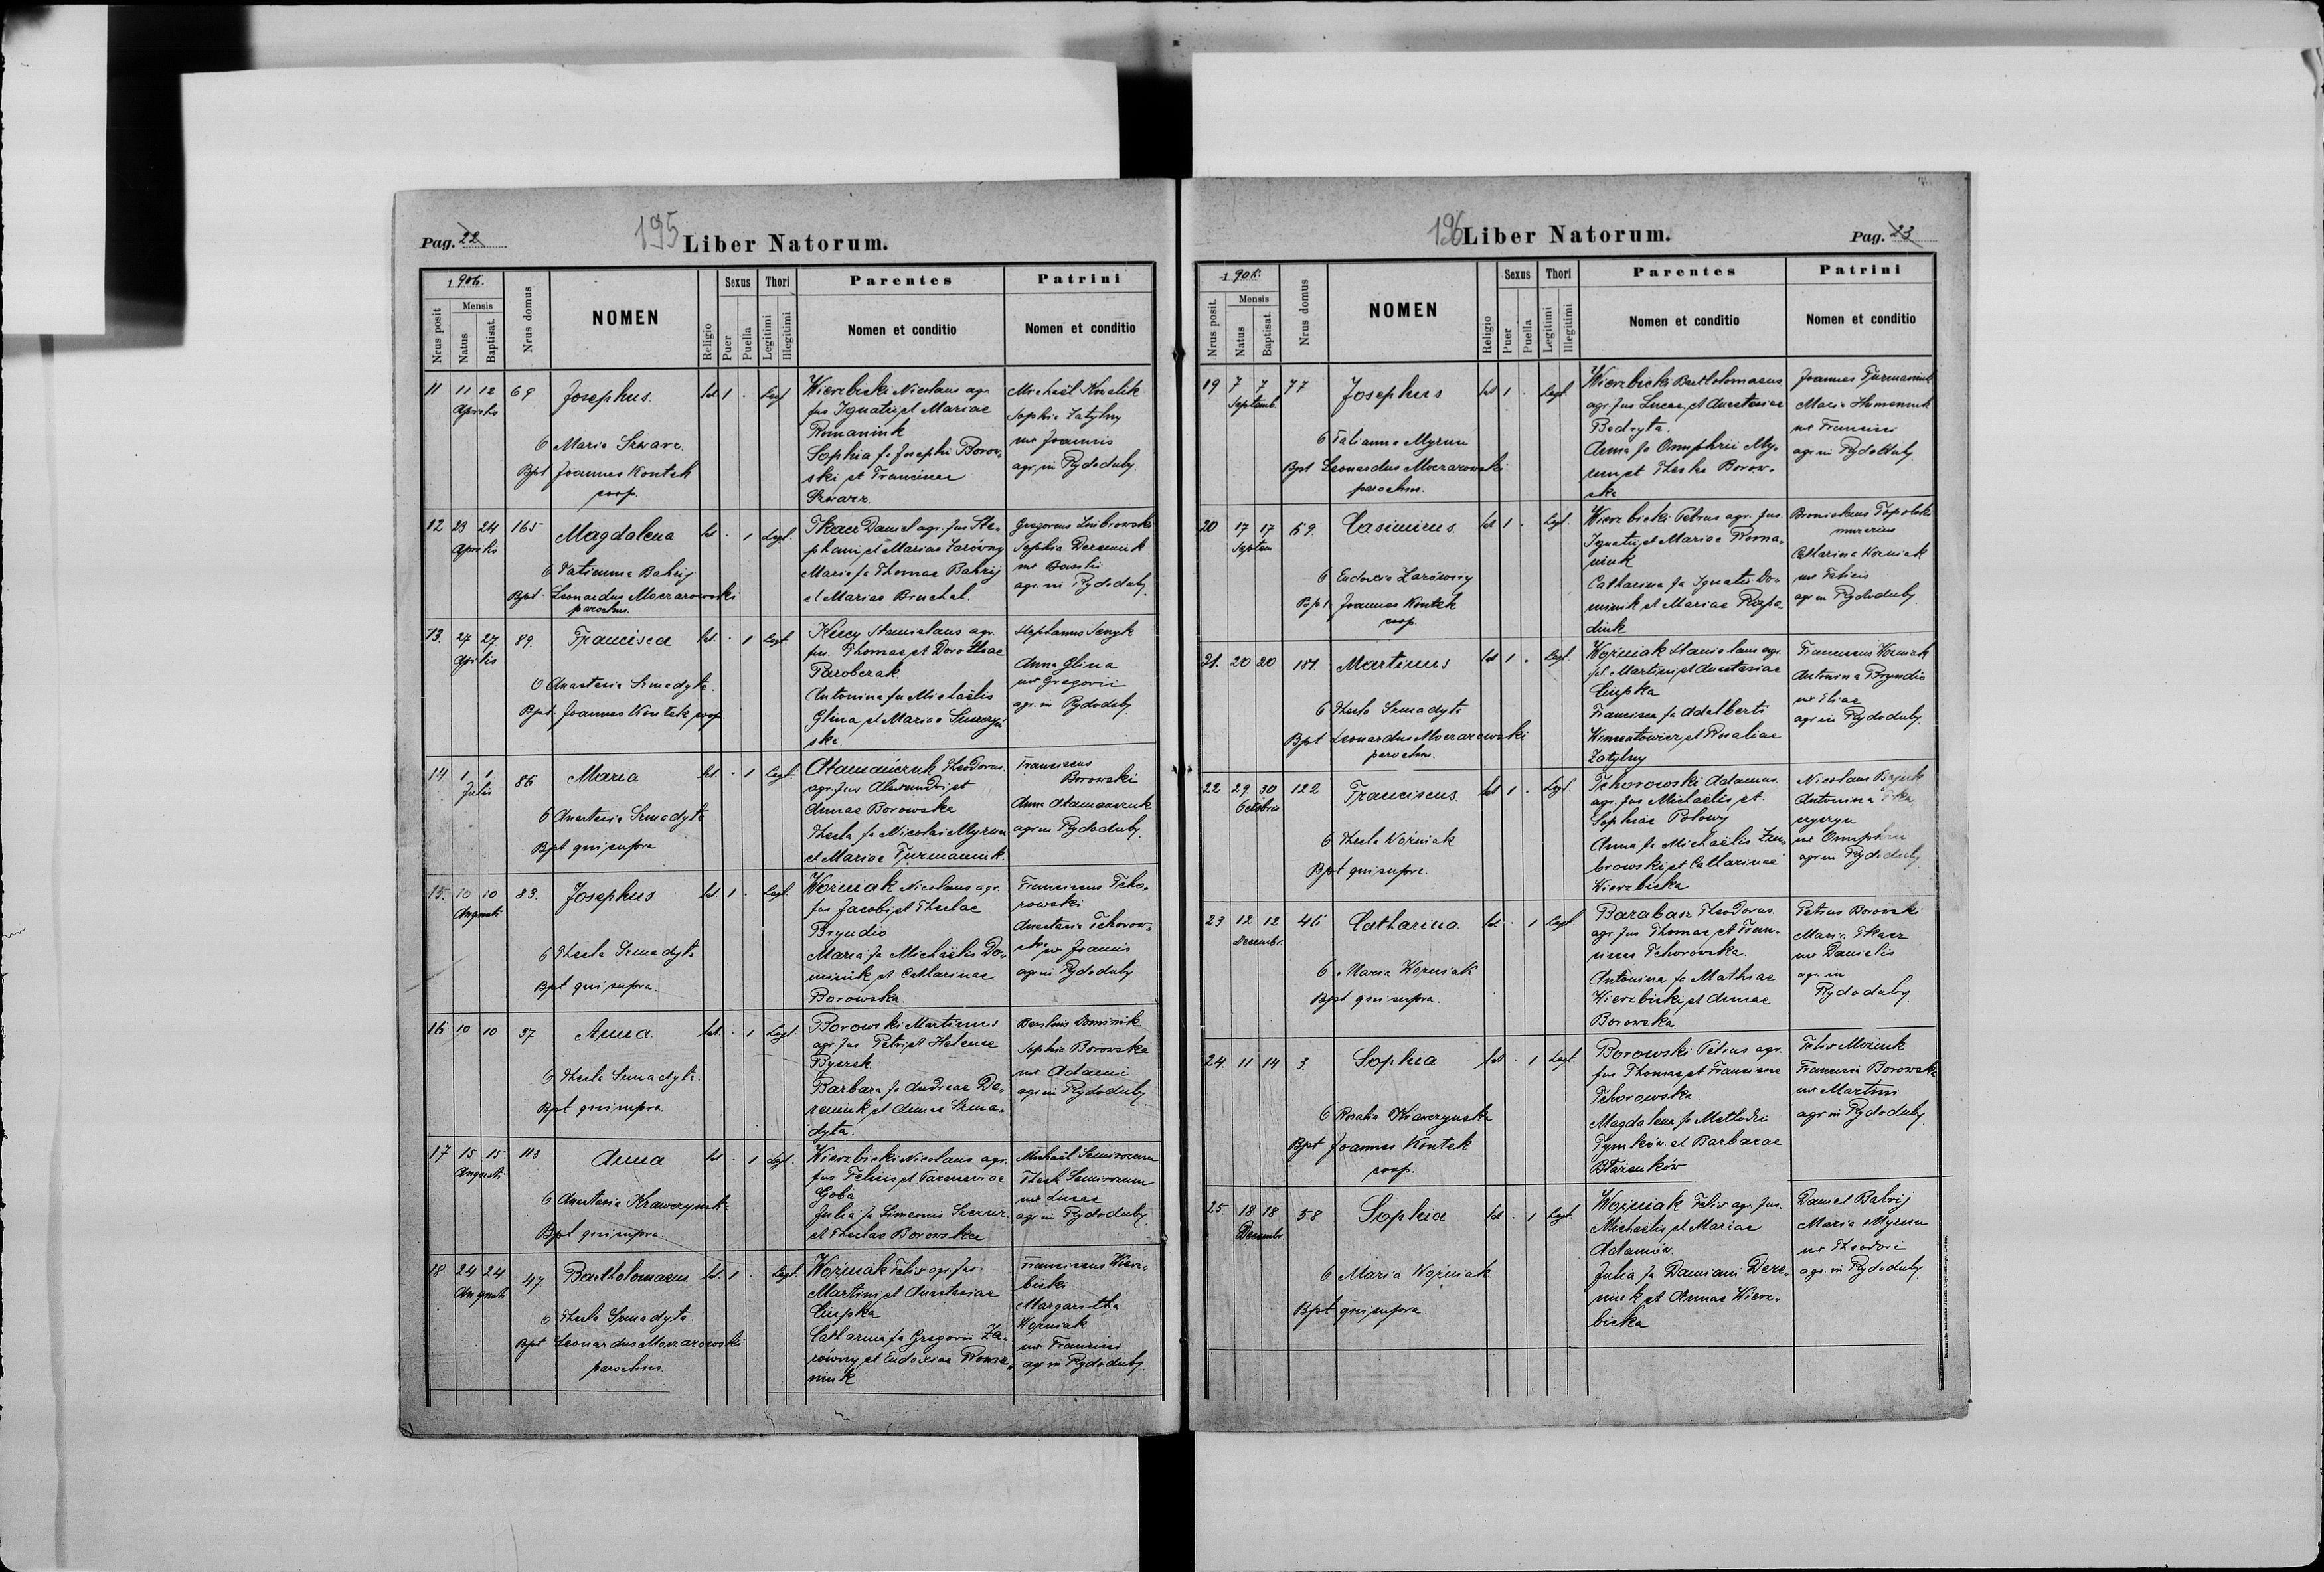 Pag. 22
195
Liber Natorum.
1906.
Nrus posit
Mensis
Natus
Baptisat.
Nrus domus
NOMEN
Religio
Sexus
Puer
Puella
Thori
Legitimi
Illegitimi
Parentes
Nomen et conditio
Patrini
Nomen et conditio
11 11 12 69 Josephus. lat 1 . Legt
Aprilis
O Maria Szwarz.
Bpt Joannes Kontek
coop.
Wierzbicki Nicolaus agr.
fus Ignatii et Mariae
Romaniuk
Sophia fa Josephi Borow-
ski et Franciscae
Szwarz.
Michaël
Sophia Zatylny
ux Joannis
agr. in Rydoduby.
12 23 24 165 Magdalena lat . 1 Legt.
Aprilis
O Tatianna Bahrij
Bpt. Leonardus Moczarowski
parochus.
Tkacz Daniel agr. fus Ste-
phani et Mariae Zarówny
Maria fa Thomae Bahrij
et Mariae Bruchal.
Gregorius
Sophia Dereniuk
ux Basilii
agr. in Rydoduby.
13. 27 27 89. Francisca lat. . 1 Legt.
Aprilis
O Anastasia Szmadyta.
Bpt. Joannes Kontek coop.
Kucy Stanislaus agr.
fus. Thomae et Dorotheae
Parobczak.
Antonina fa Michaëlis
Glina et Mariae
ska.
Stephanus Senyk
Anna Glina
ux Gregorii
agr. in Rydoduby.
14. 1 1 86. Maria lat. . 1 Legt.
Julii
O Anastasia Szmadyta
Bpt qui supra
Atamańczuk Theodorus.
agr. fus Alexandri et
Annae Borowska
Thecla fa Nicolai Myrun
et Mariae Furmaniuk.
Franciscus
Borowski
Anna Atamanczuk
agr. in Rydoduby.
15. 10 10 83. Josephus lat. 1 . Legt.
Augusti
O Thecla Szmadyta
Bpt qui supra.
Woźniak Nicolaus agr.
fus Jacobi et Theclae
Bryndio
Maria fa Michaëlis Do-
minik et Catharinae
Borowska.
Franciscus Tcho-
rowski
Anastasia Tchorow-
ska ux Joannis
agr. in Rydoduby
16 10 10 37 Anna. lat. . 1 Legt.
O Thecla Szmadyta.
Bpt qui supra
Borowski Martinus
agr. fus Petri et Helenae
Byczek.
Barbara fa Andreae De-
reniuk et Annae Szma-
dyta.
Basilius Dominik
Sophia Borowska
ux Adami
agr. in Rydoduby
17 15 15. 113 Anna lat . 1 Legt.
Augusti
O Anastasia Krawczynska
Bpt qui supra.
Wierzbicki Nicolaus agr.
fus Felicis et Parasceviae
Goba
Julia fa Simeonis Szczur
et Theclae Borowska
Michaël
Thecla
ux Lucae
agr. in Rydoduby
18 24 24 47. Bartholomaeus lat. 1 . Legt.
Augusti
O Thecla Szmadyta.
Bpt Leonardus Moczarowski
parochus.
Woźniak Felix agr. fus.
Martini et Anastasiae
Ciupka
Catharina fa Gregorii Za-
równy et Eudoxiae Roma-
niuk
Franciscus Wierz-
bicki
Margaritha
Woźniak
ux Francisci
agr. in Rydoduby.
196
Liber Natorum.
Pag. 23
1906.
Nrus posit.
Mensis
Natus
Baptisat.
Nrus domus
NOMEN
Religio
Sexus
Puer
Puella
Thori
Legitimi
Illegitimi
Parentes
Nomen et conditio
Patrini
Nomen et conditio
19 7 7 77 Josephus lat 1 . Legt.
Septemb.
O Tatianna Myrun
Bpt Leonardus Moczarowski
parochus.
Wierzbicki Bartholomaeus
agr. fus Lucae et Anastasiae
Bedryta.
Anna fa Onuphrii My-
run et Theclae Borow-
ska
Joannes Furmaniuk
Maria Humeniuk
ux Francisci
agr. in Rydoduby.
20 17 17 69. Casimirus. lat 1 . Legt.
Septem
O Eudoxia Zarówny
Bpt. Joannes Kontek
coop.
Wierzbicki Petrus agr. fus.
Ignatii et Mariae Roma-
niuk
Catharina fa Ignatii Do-
minik et Mariae
diuk
Bronislaus Topolski
murarius
Catharina Woźniak
ux Felicis
agr. in Rydoduby.
21. 20 20 181. Martinus lat 1 . Legt.
O Thecla Szmadyta
Bpt Leonardus Moczarowski
parochus.
Woźniak Stanislaus agr.
fil. Martini et Anastasiae
Ciupka
Francisca fa Adalberti
Winentowicz et Rosaliae
Zatylny
Franciscus Woźniak
Antonina Bryndio
ux Eliae
agr. in Rydoduby.
22 29. 30 122 Franciscus. lat 1 . Legt.
Octobris
O Thecla Woźniak
Bpt qui supra.
Tchorowski Adamus.
agr. fus Michaëlis et
Sophiae Polowy
Anna fa Michaëlis
browski et Catharinae
Wierzbicka
Nicolaus
Antonina
ux Onuphrii
agr. in Rydoduby
23 12 12 46 Catharina lat. . 1 Legt.
Decembr.
O Maria Woźniak
Bpt qui supra.
Barabasz Theodorus.
agr. fus Thomae et Fran-
ciscae Tchorowska.
Antonina fa Mathiae
Wierzbicki et Annae
Borowska
Petrus Borowski
Maria Tkacz
ux Danielis
agr. in
Rydoduby.
24. 11 14 3. Sophia lat . 1 Legt.
O Rosalia Krawczynska
Bpt Joannes Kontek
coop.
Borowski Petrus agr.
fus. Thomae et Franciscae
Tchorowska.
Magdalena fa Methodii
Tymków et Barbarae
Błażenków
Felix Moziuk
Francisca Borowska
ux Martini
agr. in Rydoduby.
25. 18 18 58 Sophia lat . 1 Legt.
Decembr.
O Maria Woźniak
Bpt qui supra.
Woźniak Felix agr. fus.
Michaëlis et Mariae
Adamów.
Julia fa Damiani Dere-
niuk et Annae Wierz-
bicka
Daniel Bahrij
Maria Myrun
ux Theodori
agr. in Rydoduby.